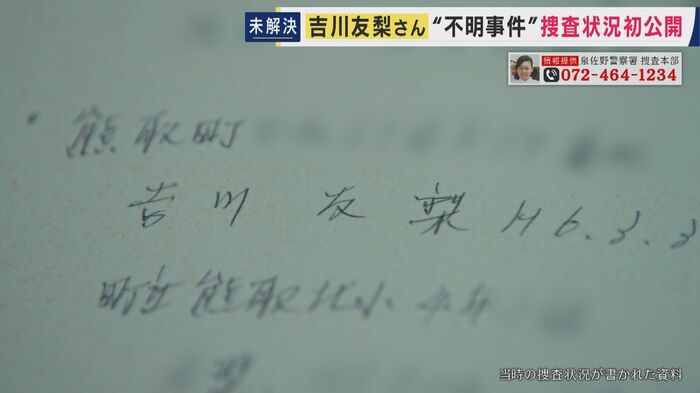 未解決 吉川友梨さん "不明事件" 捜査状況初公開
情報提供 泉佐野警察署 捜査本部
072-464-1234
・熊取町
吉川 友梨 H6.3.3
町立熊取北小 4年
当時の捜査状況が書かれた資料